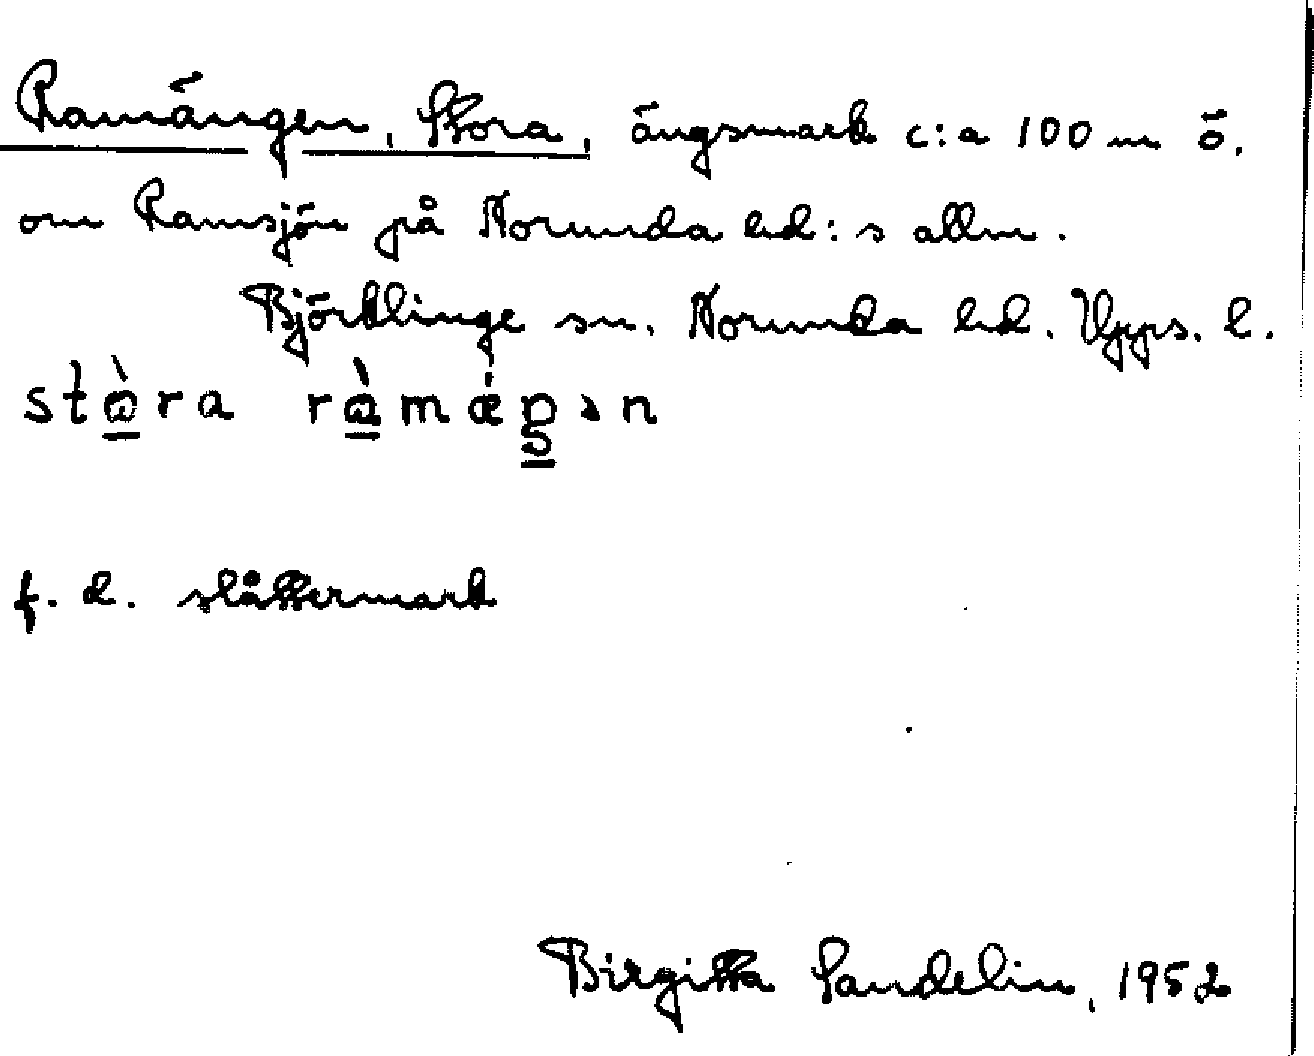 Ramängen, Stora, ängsmark c:a 100 m ö.
om Ramsjön på Norunda hd:s allm.
Björklinge sn. Norunda hd. Upps. l.
stὰra rὰmǽŋən
f. d. slåttermark
Birgitta Sandelin, 1952